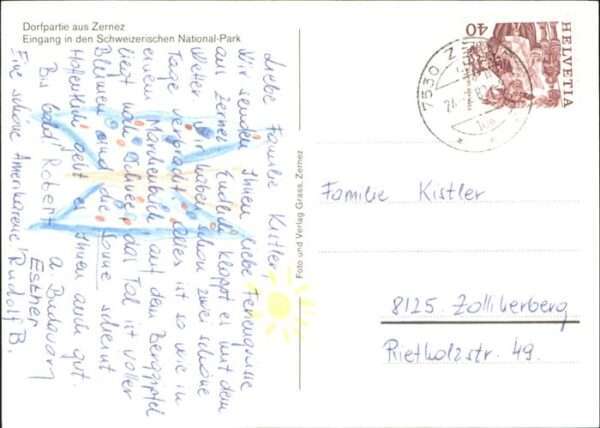 Dorfpartie aus Zernez
Eingang in den Schweizerischen National-Park
Liebe Familie Kistler,
Wir senden Ihnen liebe Feriengrüsse
aus Zernez. Endlich klappt es mit dem
Wetter. Wir haben schon zwei schöne
Tage verbracht. Alles ist so wie in
einem Märchenbuch auf dem Berggipfel
liegt noch Schnee, das Tal ist voller
Blumen und die Sonne scheint
Hoffentlich geht es Ihnen auch gut.
Bis bald! Robert a. Budavary
Escher
Eine schöne Amerikareise! Rudolf B.
Foto und Verlag Grass, Zernez
HELVETIA
40
7530 Z
Familie Kistler
8125 Zollikerberg
Rietholzstr. 49.